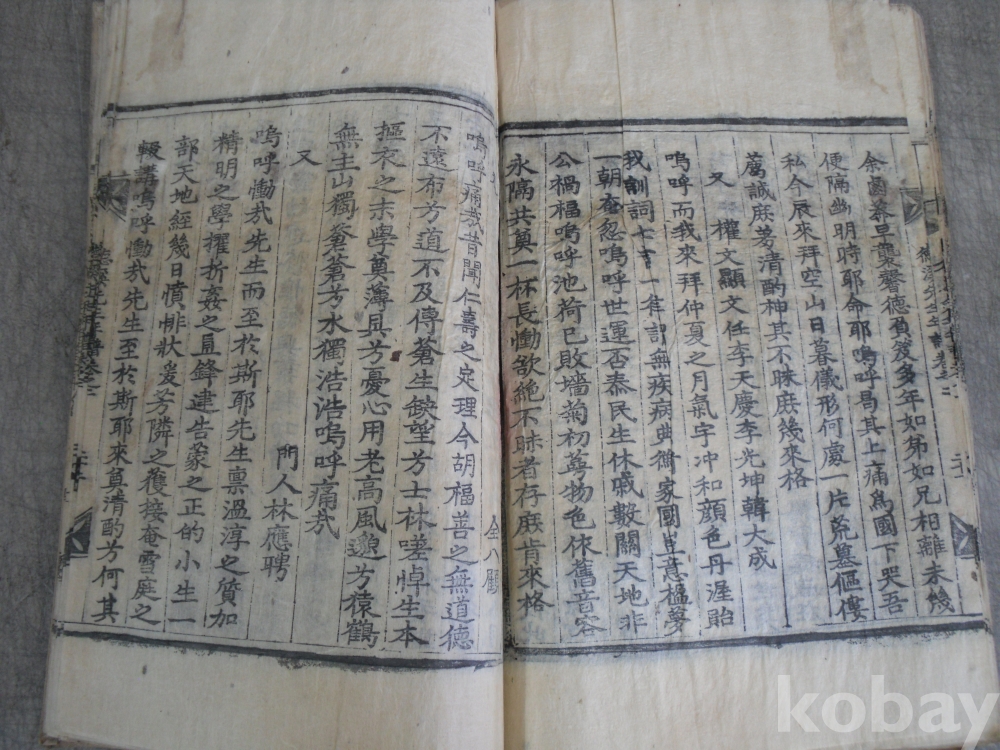 余菌慕旦襲馨德負笈多年如弟如兄相離未幾
便隔幽明時耶命耶嗚呼曷其上痛爲國下哭吾
私今辰來拜空山日暮儀形何處一片荒墓傴僂
薦誠庶芳清酌神其不昧庶幾來格
又 權文顯文任李天慶李光坤韓大成
嗚呼而我來拜仲夏之月氣宇冲和顏色丹渥貽
我訓詞七言一律詞無疾病典衛家國豈意楹夢
一朝奄忽嗚呼世運否泰民生休戚數關天地非
公禍福嗚呼池荷已敗墻菊初萼物色依舊音容
永隔共奠一杯長慟欲絶不昧者存庶肯來格
全八顧
嗚呼痛哉昔聞仁壽之定理今胡福善之無道德
不遠布芳道不及傳蒼生缺望芳士林嗟悼生本
摳衣之末學奠薄具芳憂心用老高風邈芳猿鶴
無主山獨蒼蒼芳水獨浩浩嗚呼痛哉
又 門人林應聘
嗚呼慟哉先生而至於斯耶先生禀溫淳之質加
精明之學擢折姦之直鋒建告蒙之正的小生一
部天地經幾日憤悱狀爰芳隣之獲接奄雪庭之
輟講嗚呼慟哉先生至於斯耶來奠清酌芳何其
kobay